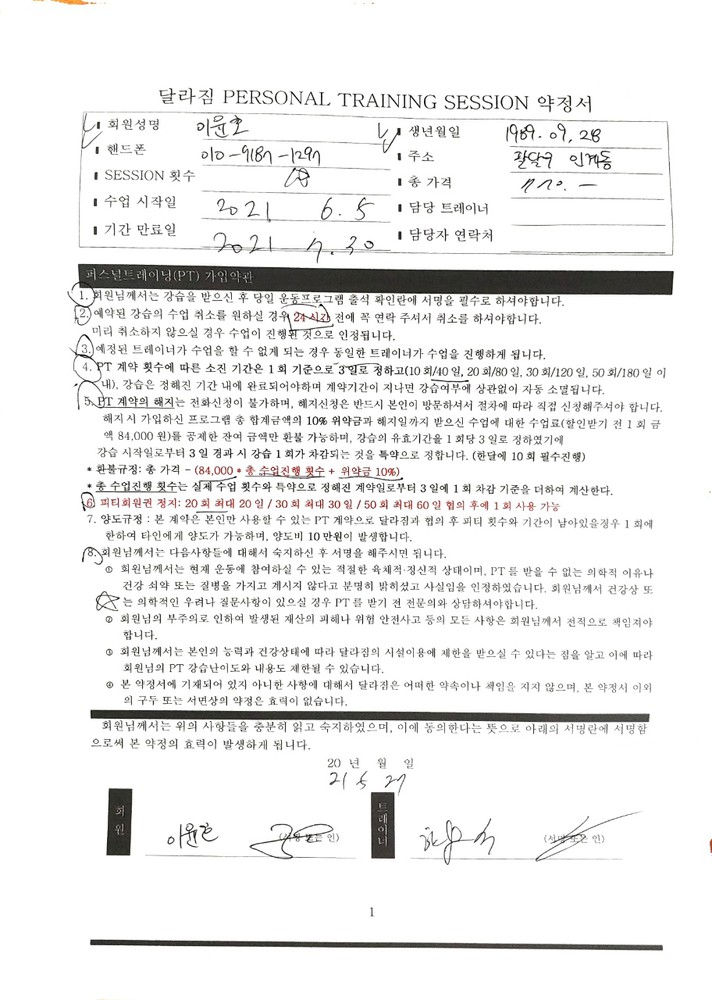 달라짐 PERSONAL TRAINING SESSION 약정서
회원성명 이윤호
생년월일 1989. 09. 28
핸드폰 010-9187-1297
주소 팔달구 인계동
SESSION 횟수
총 가격
수업 시작일 2021 6. 5
담당 트레이너
기간 만료일 2021 7. 30
담당자 연락처
퍼스널트레이닝(PT) 가입약관
1. 회원님께서는 강습을 받으신 후 당일 운동프로그램 출석 확인란에 서명을 필수로 하셔야합니다.
2. 예약된 강습의 수업 취소를 원하실 경우 24시간 전에 꼭 연락 주셔서 취소를 하셔야합니다.
미리 취소하지 않으실 경우 수업이 진행된 것으로 인정됩니다.
3. 예정된 트레이너가 수업을 할 수 없게 되는 경우 동일한 트레이너가 수업을 진행하게 됩니다.
4. PT 계약 횟수에 따른 소진 기간은 1회 기준으로 3일로 정하고(10회/40일, 20회/80일, 30회/120일, 50회/180일 이
내). 강습은 정해진 기간 내에 완료되어야하며 계약기간이 지나면 강습여부에 상관없이 자동 소멸됩니다.
5. PT 계약의 해지는 전화신청이 불가하며, 해지신청은 반드시 본인이 방문하셔서 절차에 따라 직접 신청해주셔야 합니다.
해지 시 가입하신 프로그램 총 합계금액의 10% 위약금과 해지일까지 받으신 수업에 대한 수업료(할인받기 전 1회 금
액 84,000원)를 공제한 잔여 금액만 환불 가능하며, 강습의 유효기간을 1회당 3일로 정하였기에
강습 시작일로부터 3일 경과 시 강습 1회가 차감되는 것을 특약으로 정합니다. (한달에 10회 필수진행)
* 환불규정: 총 가격 - (84,000 * 총 수업진행 횟수 + 위약금 10%)
* 총 수업진행 횟수는 실제 수업 횟수와 특약으로 정해진 계약일로부터 3일에 1회 차감 기준을 더하여 계산한다.
6. 피티회원권 정지: 20회 최대 20일 / 30회 최대 30일 / 50회 최대 60일 협의 후에 1회 사용 가능
7. 양도규정 : 본 계약은 본인만 사용할 수 있는 PT 계약으로 달라짐과 협의 후 피티 횟수와 기간이 남아있을경우 1회에
한하여 타인에게 양도가 가능하며, 양도비 10만원이 발생합니다.
8. 회원님께서는 다음사항들에 대해서 숙지하신 후 서명을 해주시면 됩니다.
① 회원님께서는 현재 운동에 참여하실 수 있는 적절한 육체적·정신적 상태이며, PT를 받을 수 없는 의학적 이유나
건강 쇠약 또는 질병을 가지고 계시지 않다고 분명히 밝히셨고 사실임을 인정하였습니다. 회원님께서 건강상 또
는 의학적인 우려나 질문사항이 있으실 경우 PT를 받기 전 전문의와 상담하셔야합니다.
② 회원님의 부주의로 인하여 발생된 재산의 피해나 위험 안전사고 등의 모든 사항은 회원님께서 전적으로 책임져야
합니다.
③ 회원님께서는 본인의 능력과 건강상태에 따라 달라짐의 시설이용에 제한을 받으실 수 있다는 점을 알고 이에 따라
회원님의 PT 강습난이도와 내용도 제한될 수 있습니다.
④ 본 약정서에 기재되어 있지 아니한 사항에 대해서 달라짐은 어떠한 약속이나 책임을 지지 않으며, 본 약정서 이외
의 구두 또는 서면상의 약정은 효력이 없습니다.
회원님께서는 위의 사항들을 충분히 읽고 숙지하였으며, 이에 동의한다는 뜻으로 아래의 서명란에 서명함
으로써 본 약정의 효력이 발생하게 됩니다.
20 년 월 일
21 5 27
회원 이윤호 (서명 또는 인)
트레이너 (서명 또는 인)
1